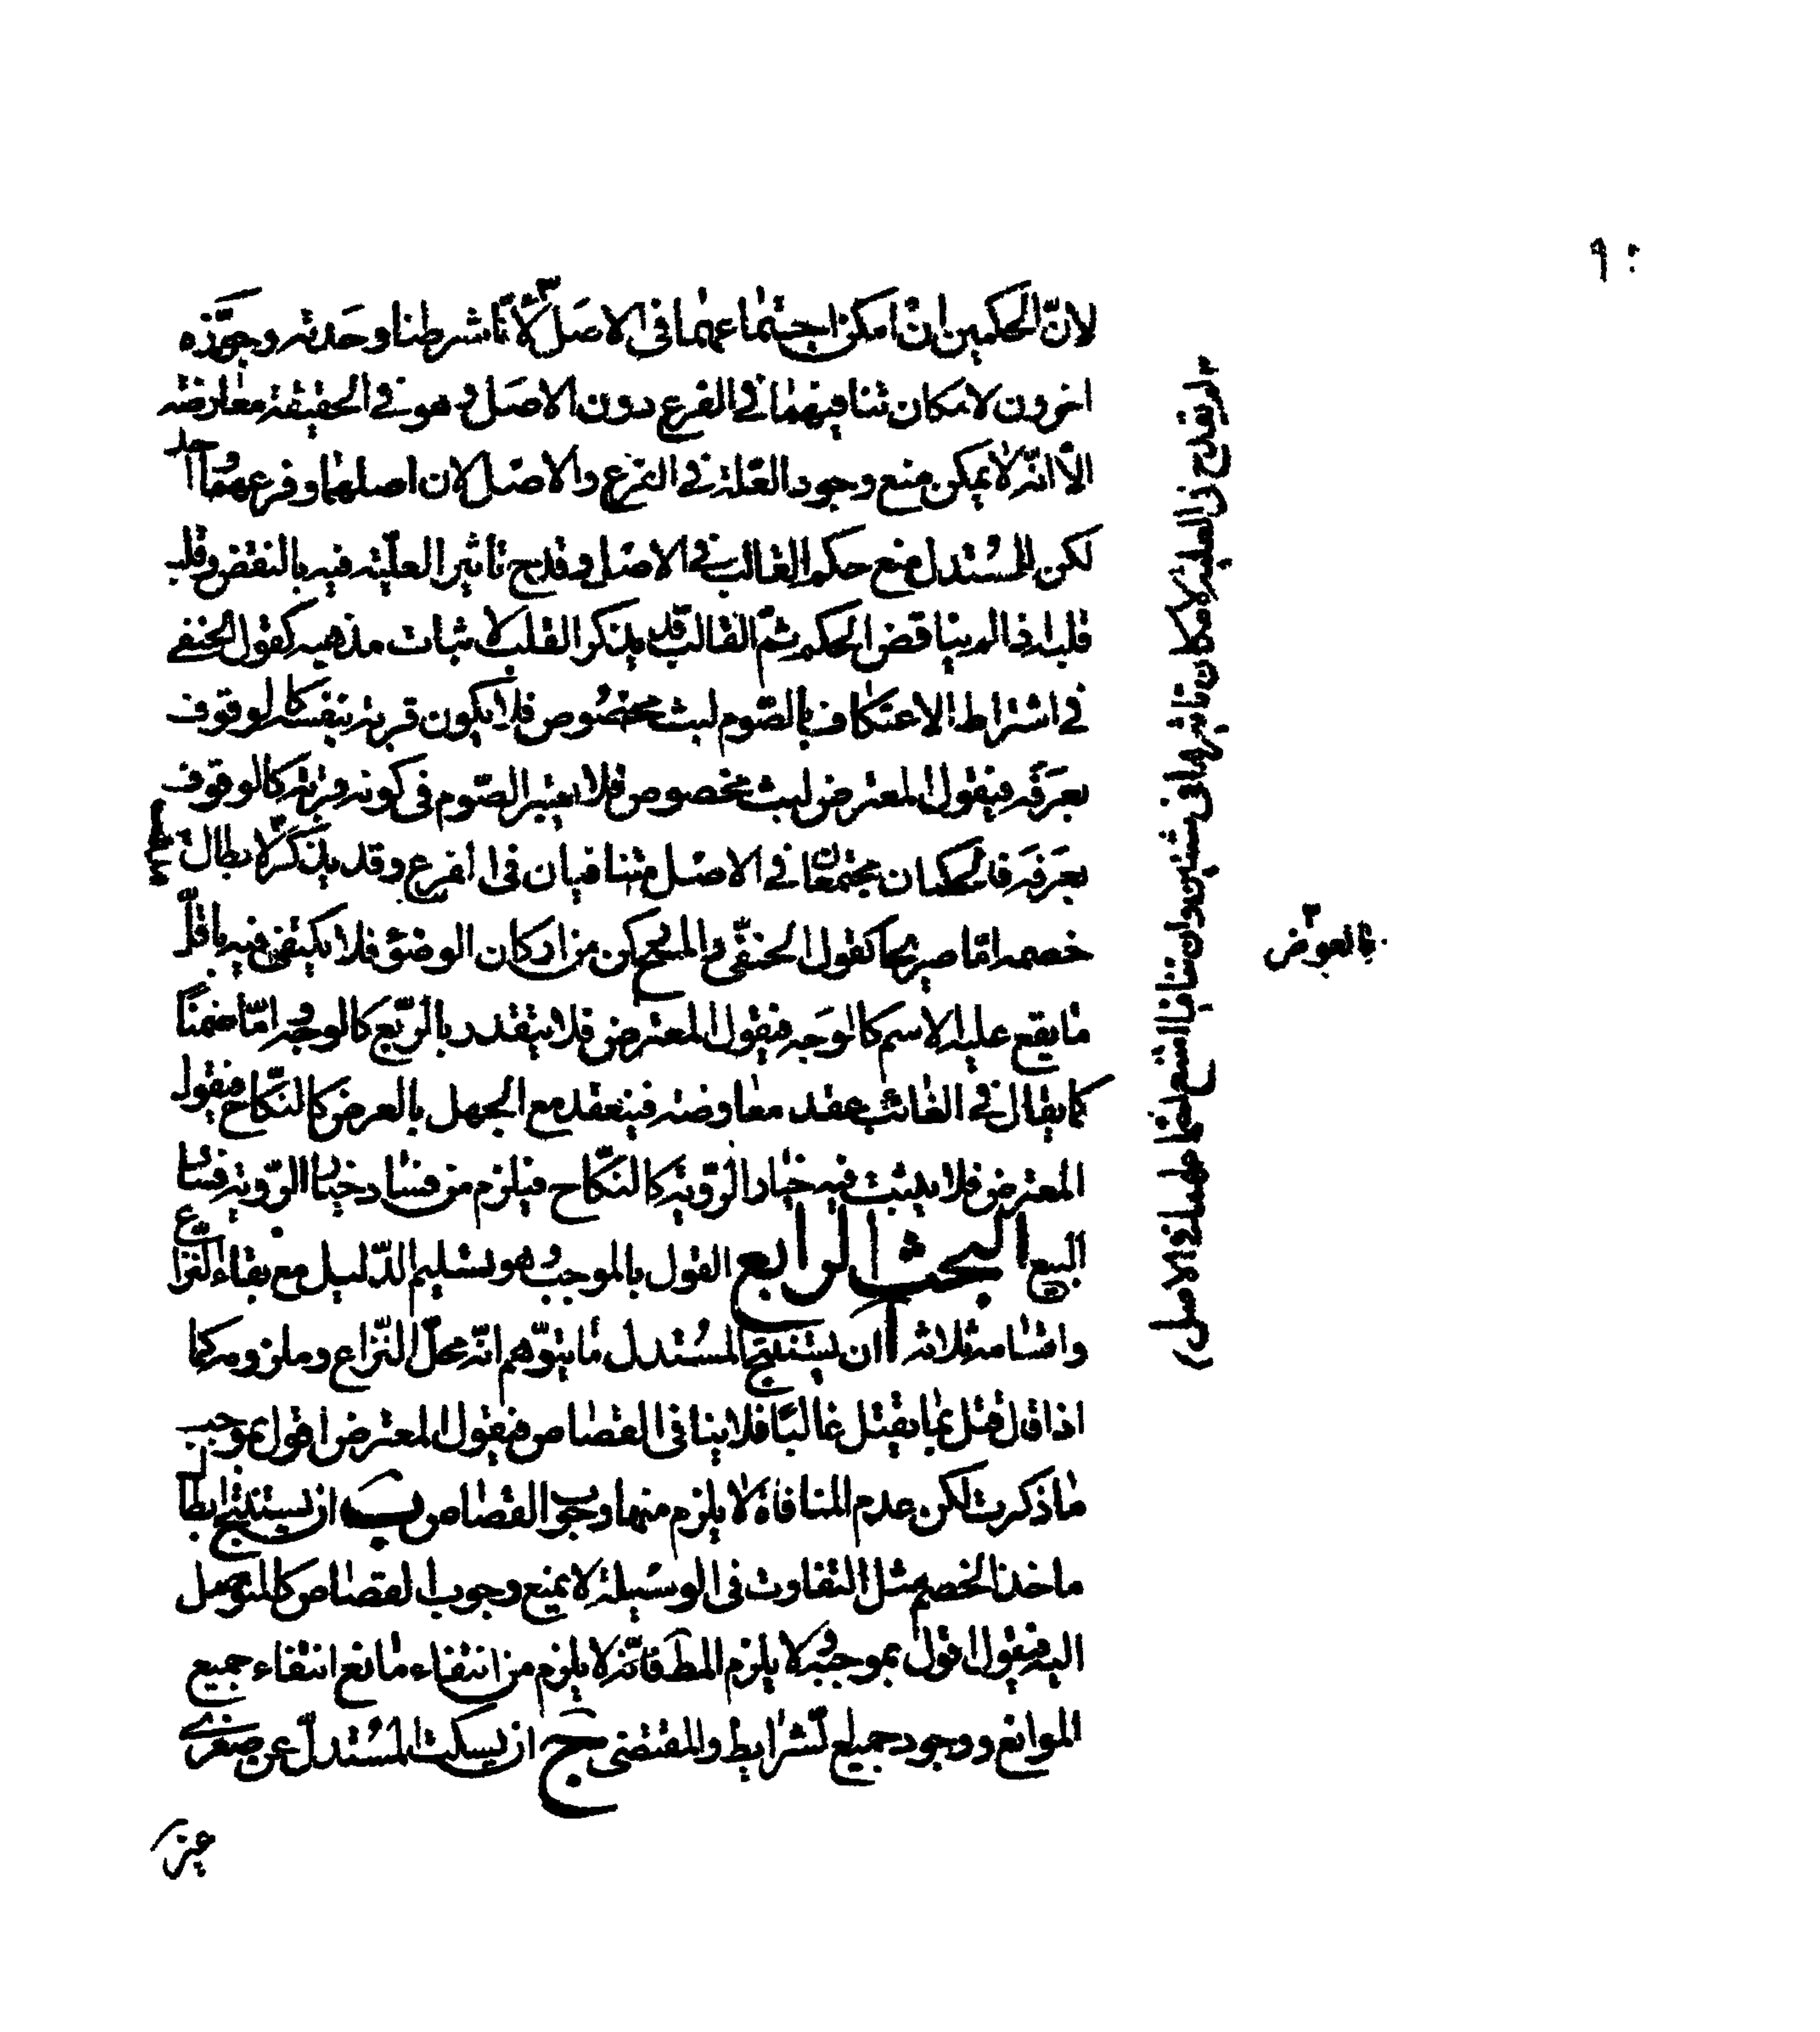 ٩٠
لانّ الحكمين ان امكن اجتماعهما فى الاصل لانّا شرطنا وحدته وجوّزه
اخرون لامكان تنافيهما فى الفرع دون الاصل وهو فى الحقيقة معارضة
الّا انّه لا يمكن منع وجود العلة فى الفرع والاصل لان اصلهما وفرعهما واحد
لكن للمستدل منع حكم القالب فى الاصل وقدح تاثير العلية فيه بالنقض وقلب
قلبه اذا لم يناقض الحكم ثمّ القالب قد يذكر القلب لاثبات مذهبه كقول الحنفى
فى اشتراط الاعتكاف بالصّوم لبث مخصوص فلا يكون قربة بنفسه كالوقوف
بعرفة فيقول المعترض لبث مخصوص فلا يعتبر الصّوم فى كونه قربة كالوقوف
بعرفة فالحكمان مجتمعان فى الاصل متنافيان فى الفرع وقد يذكر لابطال مذهب
خصمه امّا صريحا كقول الحنفى فى المسح ركن من اركان الوضوء فلا يكتفى فيه باقلّ
ما يقع عليه الاسم كالوجه فيقول المعترض فلا يتقدر بالربع كالوجه وامّا ضمنا
كما يقال فى الغائب عقد معاوضة فينعقد مع الجهل بالعوض كالنّكاح فيقول
المعترض فلا يثبت فيه خيار الرّوية كالنّكاح فيلزم من فساد خيار الرّوية فساد
البيع البحث الرابع القول بالموجب وهو تسليم الدّليل مع بقاء النّزاع
واقسامه ثلاثة آ ان يستنتج المستدل ما يتوّهم انّه محلّ النّزاع وملزومه كما
اذا قال قتل بما يقتل غالبًا فلا ينافى القصاص فيقول المعترض اقول بموجب
ما ذكرت لكن عدم المنافاة لا يلزم منها وجوب القصاص ب ان يستنتج ابطال
ماخذ الخصم مثل التفاوت فى الوسيلة لا يمنع وجوب القصاص كالمتوصل
اليه فيقول اقول بموجبه ولا يلزم المط فانّه لا يلزم من انتفاء مانع انتفاء جميع
الموانع ووجود جميع الشرايط والمقتضى ج ان يسكت المستدلّ عن صغرى
غير
لم يقدح فى العلية لامكان تاثيرهما فى شيئين وان تنافيا امتنع اجتماعهما فى الاصل
بالعوض